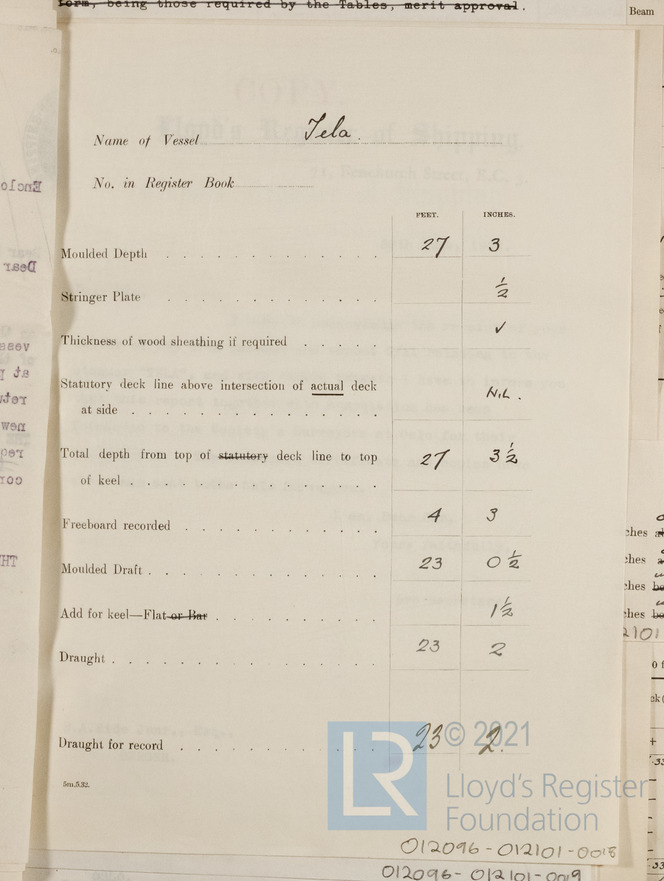 form, being those required by the Tables, merit approval.
Beam
Name of Vessel Tela.
No. in Register Book
FEET. INCHES.
Moulded Depth 27 3
Stringer Plate ½
Thickness of wood sheathing if required ✓
Statutory deck line above intersection of actual deck
at side NIL.
Total depth from top of statutory deck line to top
of keel 27 3½
Freeboard recorded 4 3
Moulded Draft 23 0½
Add for keel—Flat or Bar 1½
Draught 23 2
Draught for record 23 2.
5m,5.32.
© 2021
LR
Lloyd's Register
Foundation
012096-012101-0018
012096-012101-0019